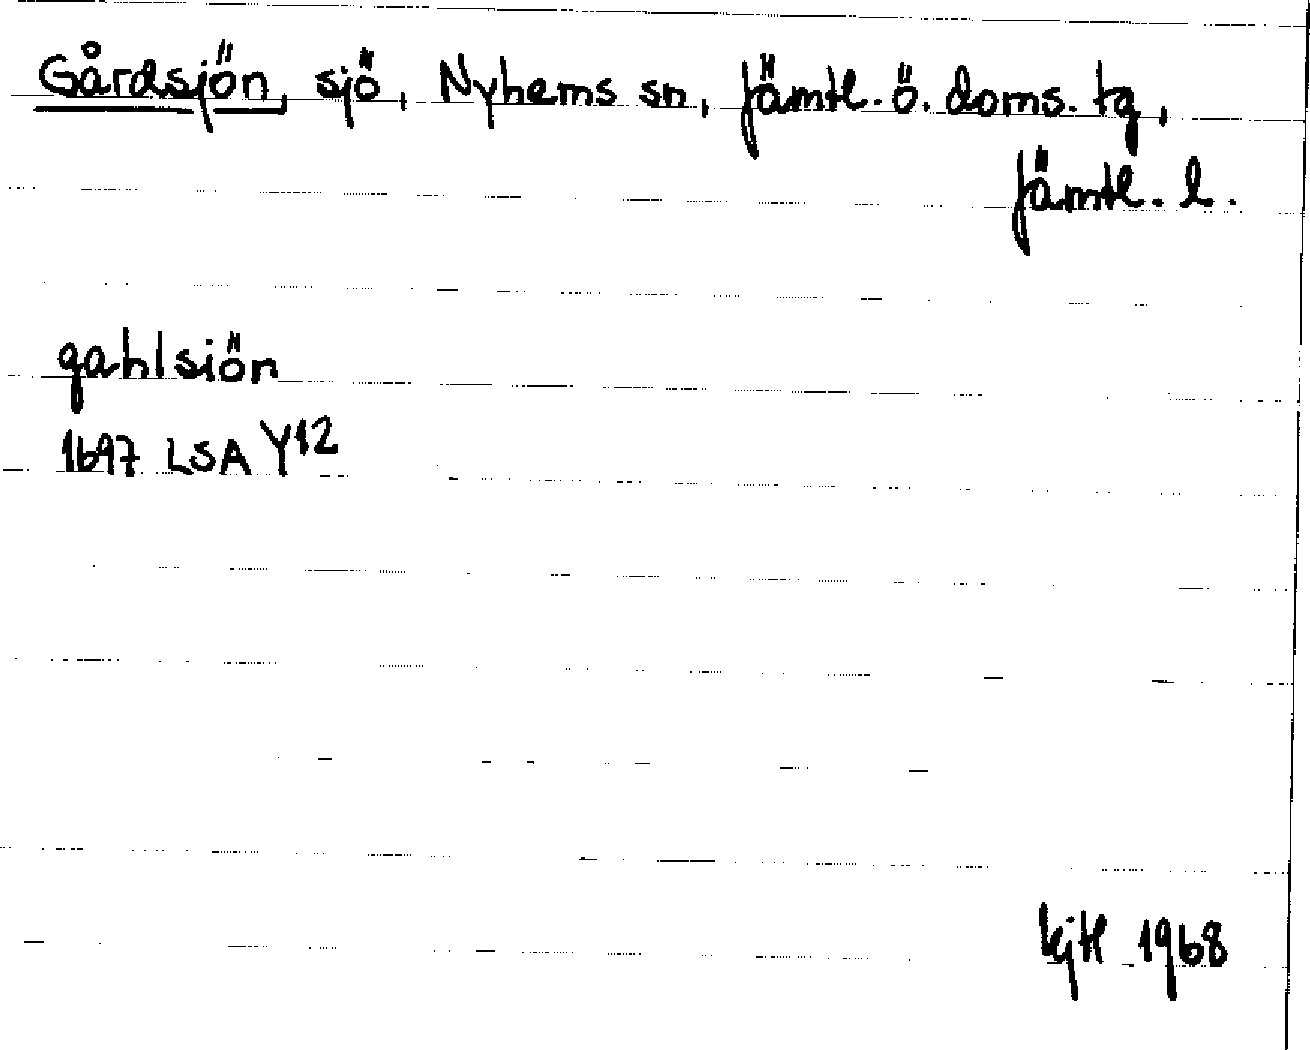 Gårdsjön, sjö, Nyhems sn, Jämtl. ö. doms. tg,
Jämtl. l.
gahlsiön
1697 LSA Y12
kjtl 1968